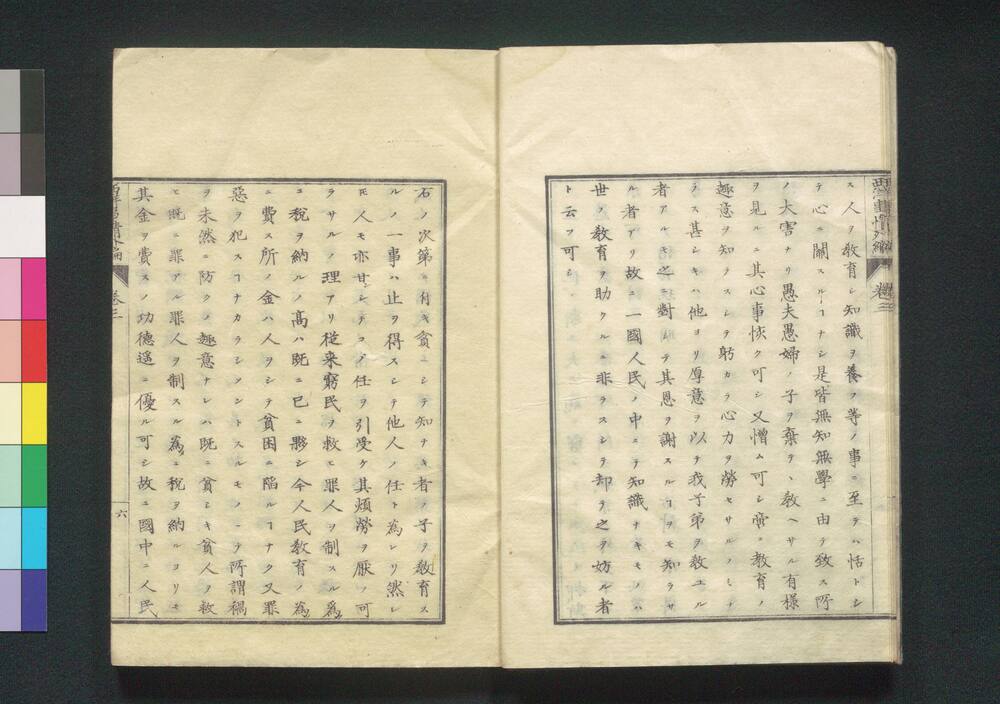 西洋事情外編 卷三
ス人ヲ教育シ知識ヲ養フ等ノ事ニ至テハ恬トシ
テ心ニ關スルヿナシ是皆無知無學ニ由テ致ス所
ノ大害ナリ愚夫愚婦ノ子ヲ棄テヽ教ヘサル有樣
ヲ見ルニ其心事恢ク可シ又憎ム可シ啻ニ教育ノ
趣意ヲ知ラスシテ躬カラ心力ヲ勞セサルノミナ
ラス甚シキハ他ヨリ厚意ヲ以テ我子弟ヲ教ユル
者アルモ之ニ對シテ其恩ヲ謝スルヿヲモ知ラサ
ル者アリ故ニ一國人民ノ中ニテ知識ナキモノハ
世ノ教育ヲ助クルニ非ラスシテ却テ之ヲ妨ル者
ト云フ可シ
右ノ次第ニ付キ貧ニシテ知ナキ者ノ子ヲ教育ス
ルノ一事ハ止ヲ得スシテ他人ノ任ト為レリ然レ
𪜈人モ亦甘シテコノ任ヲ引受ケ其煩勞ヲ厭フ可
ラサルノ理アリ從来窮民ヲ救ヒ罪人ヲ制スル為
ニ税ヲ納ルノ高ハ既ニ已ニ夥シ今人民教育ノ為
ニ費ス所ノ金ハ人ヲシテ貧困ニ陥ルヿナク又罪
惡ヲ犯スヿナカラシメントスルモノニテ所謂禍
ヲ未然ニ防クノ趣意ナレハ既ニ貧シキ貧人ヲ救
ヒ既ニ罪アル罪人ヲ制スル為ニ税ヲ納ルヨリモ
其金ヲ費スノ功德遥ニ優ル可シ故ニ國中ニ人民
西洋事情外編 卷三 六